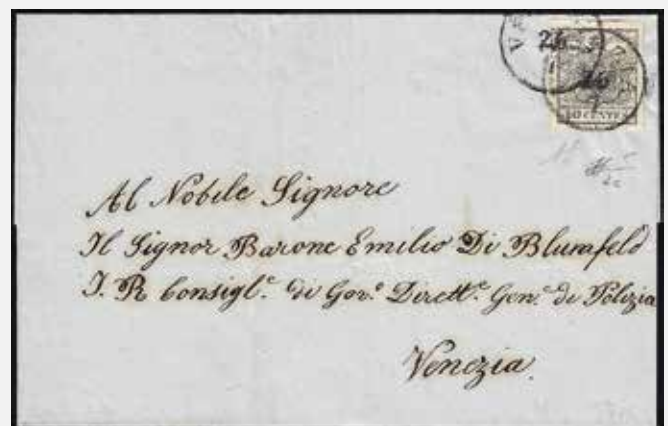 26
16
CENTES
Al Nobile Signore
Il Signor Barone Emilio Di Blumfeld
I. R. Consigl.e di Gov.o Dirett.e Gen. de Polizia
Venezia.